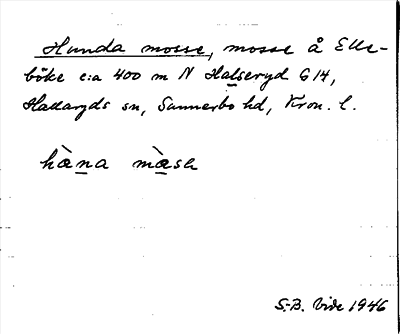 Hunda mosse, mosse å Elle-
böke c:a 400 m N Halseryd G 14,
Hallaryds sn, Sunnerbo hd, Kron. l.
hæ̀na mæ̀sa
S.-B. Vide 1946